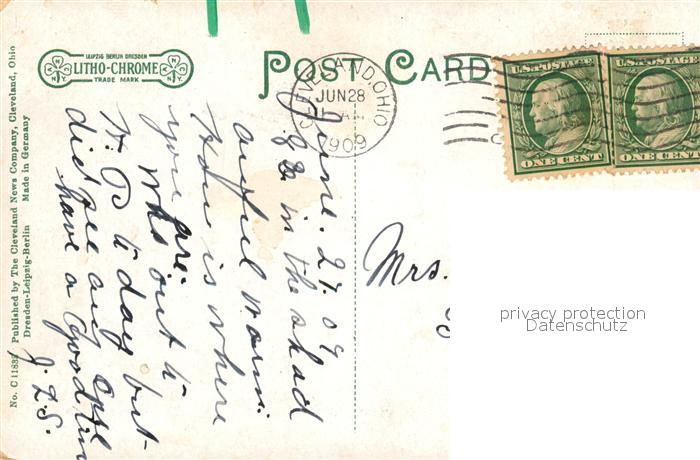 No. C 11832 Published by The Cleveland News Company, Cleveland, Ohio
Dresden-Leipzig-Berlin Made in Germany
LEIPZIG BERLIN DRESDEN
LITHO-CHROME
TRADE MARK
POST CARD
CLEVELAND, OHIO
JUN 28
1909
U.S. POSTAGE
ONE CENT
U.S. POSTAGE
ONE CENT
June. 27. 09
82 in the shad
awful warm.
How is where
you are.
Was out to
W. P. to day but
did see any one
have a good time
J. L. S.
Mrs.
privacy protection
Datenschutz